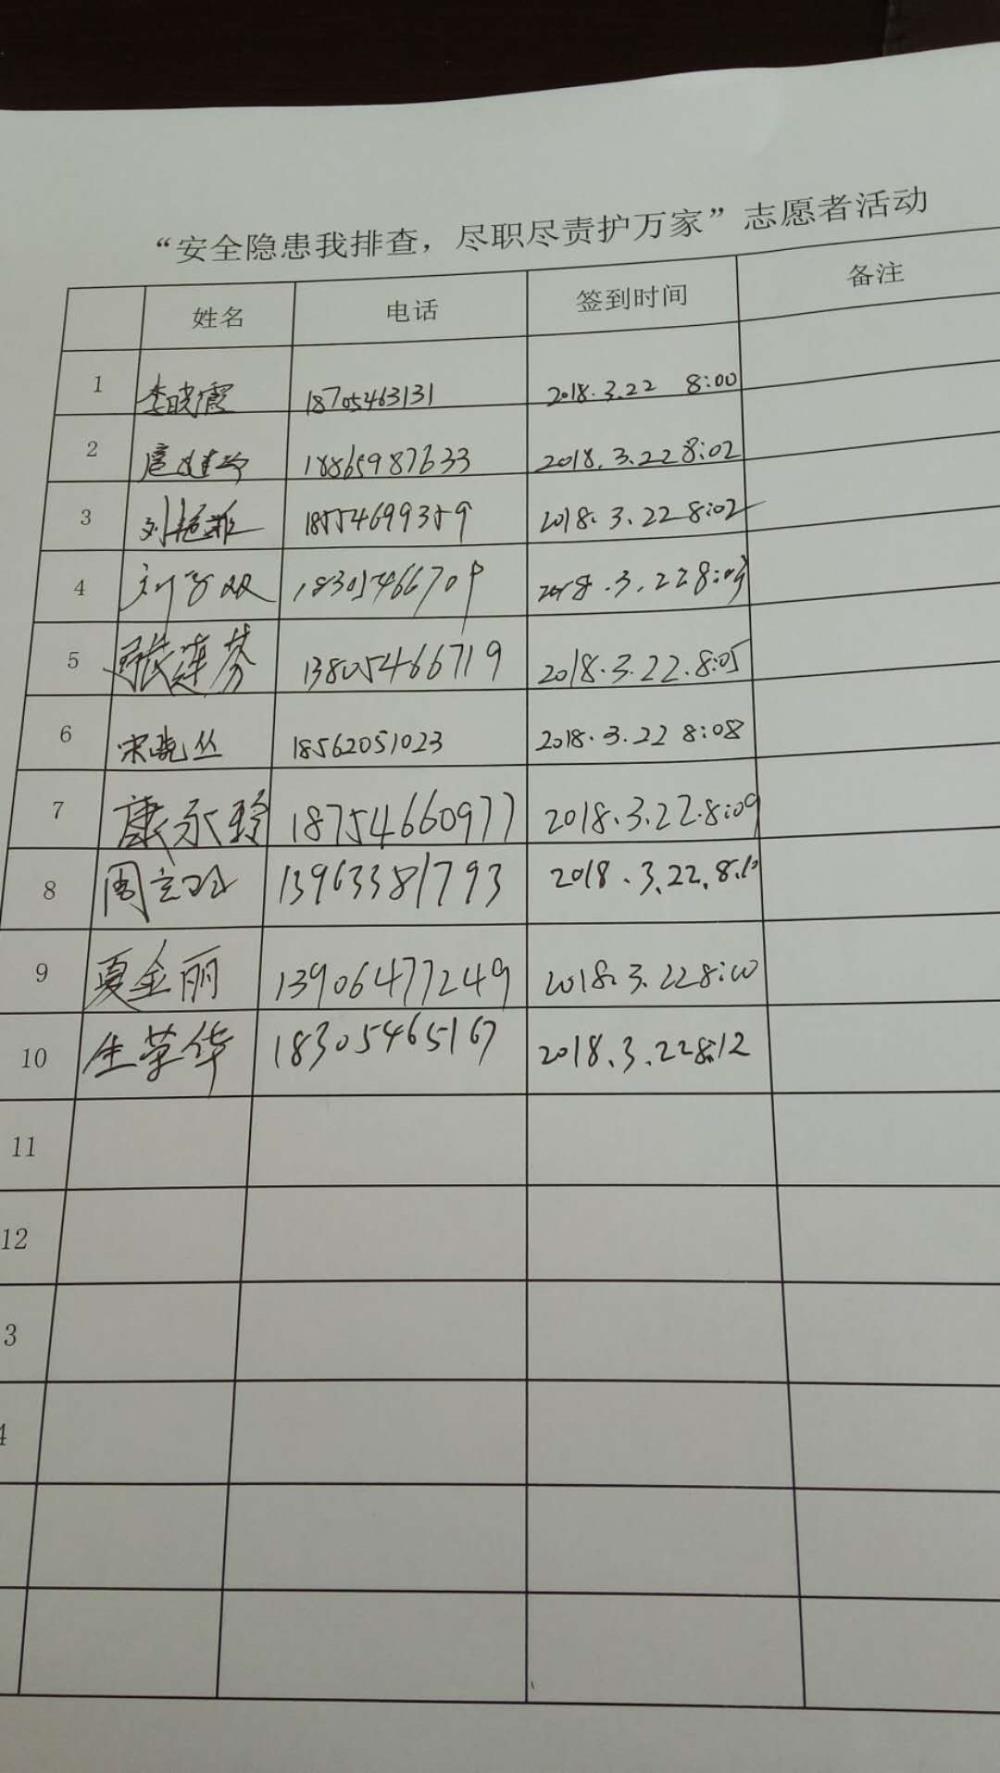 “安全隐患我排查，尽职尽责护万家”志愿者活动
姓名 电话 签到时间 备注
1 李晓霞 18705463131 2018.3.22 8:00
2 18865987633 2018.3.22 8:02
3 刘艳菲 18554699359 2018.3.22 8:02
4 刘 双 2018.3.22
5 张莲芬 13805466719 2018.3.22.8:05
6 宋晓丛 18562051023 2018.3.22 8:08
7 康永玲 18754660977 2018.3.22.8:09
8 周 13963381793 2018.3.22.8:10
9 夏金丽 13906477249 2018.3.22 8:10
10 生荣华 18305465167 2018.3.22 8:12
11
12
3
4